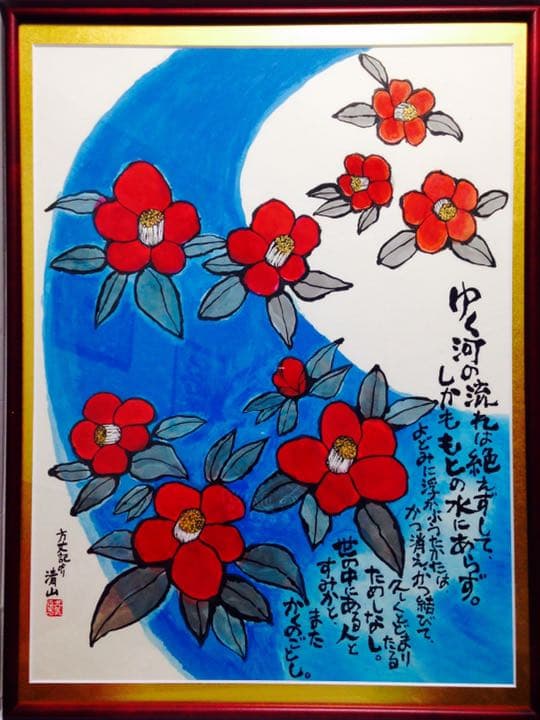 ゆく河の流れは絶えずして、
しかももとの水にあらず。
よどみに浮かぶうたかたは
かつ消えかつ結びて、
久しくとどまり
たる
ためしなし。
世の中にある人と
すみかと
また
かくのごとし。
方丈記より
清山